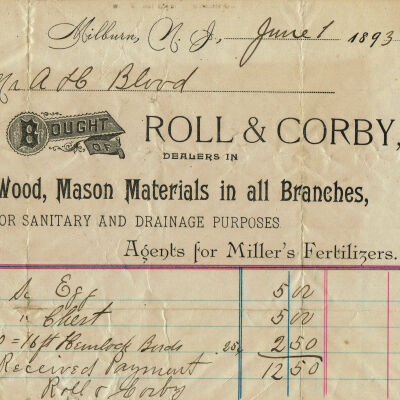 Milburn, N. J., June 1 1893
Mr A H Blood
BOUGHT OF ROLL & CORBY,
DEALERS IN
Wood, Mason Materials in all Branches,
OR SANITARY AND DRAINAGE PURPOSES
Agents for Miller's Fertilizers.
Egg 5 00
" Chest 5 00
= 16 ft Hemlock Bords 25c 2 50
Received Payment 12 50
Roll & Corby